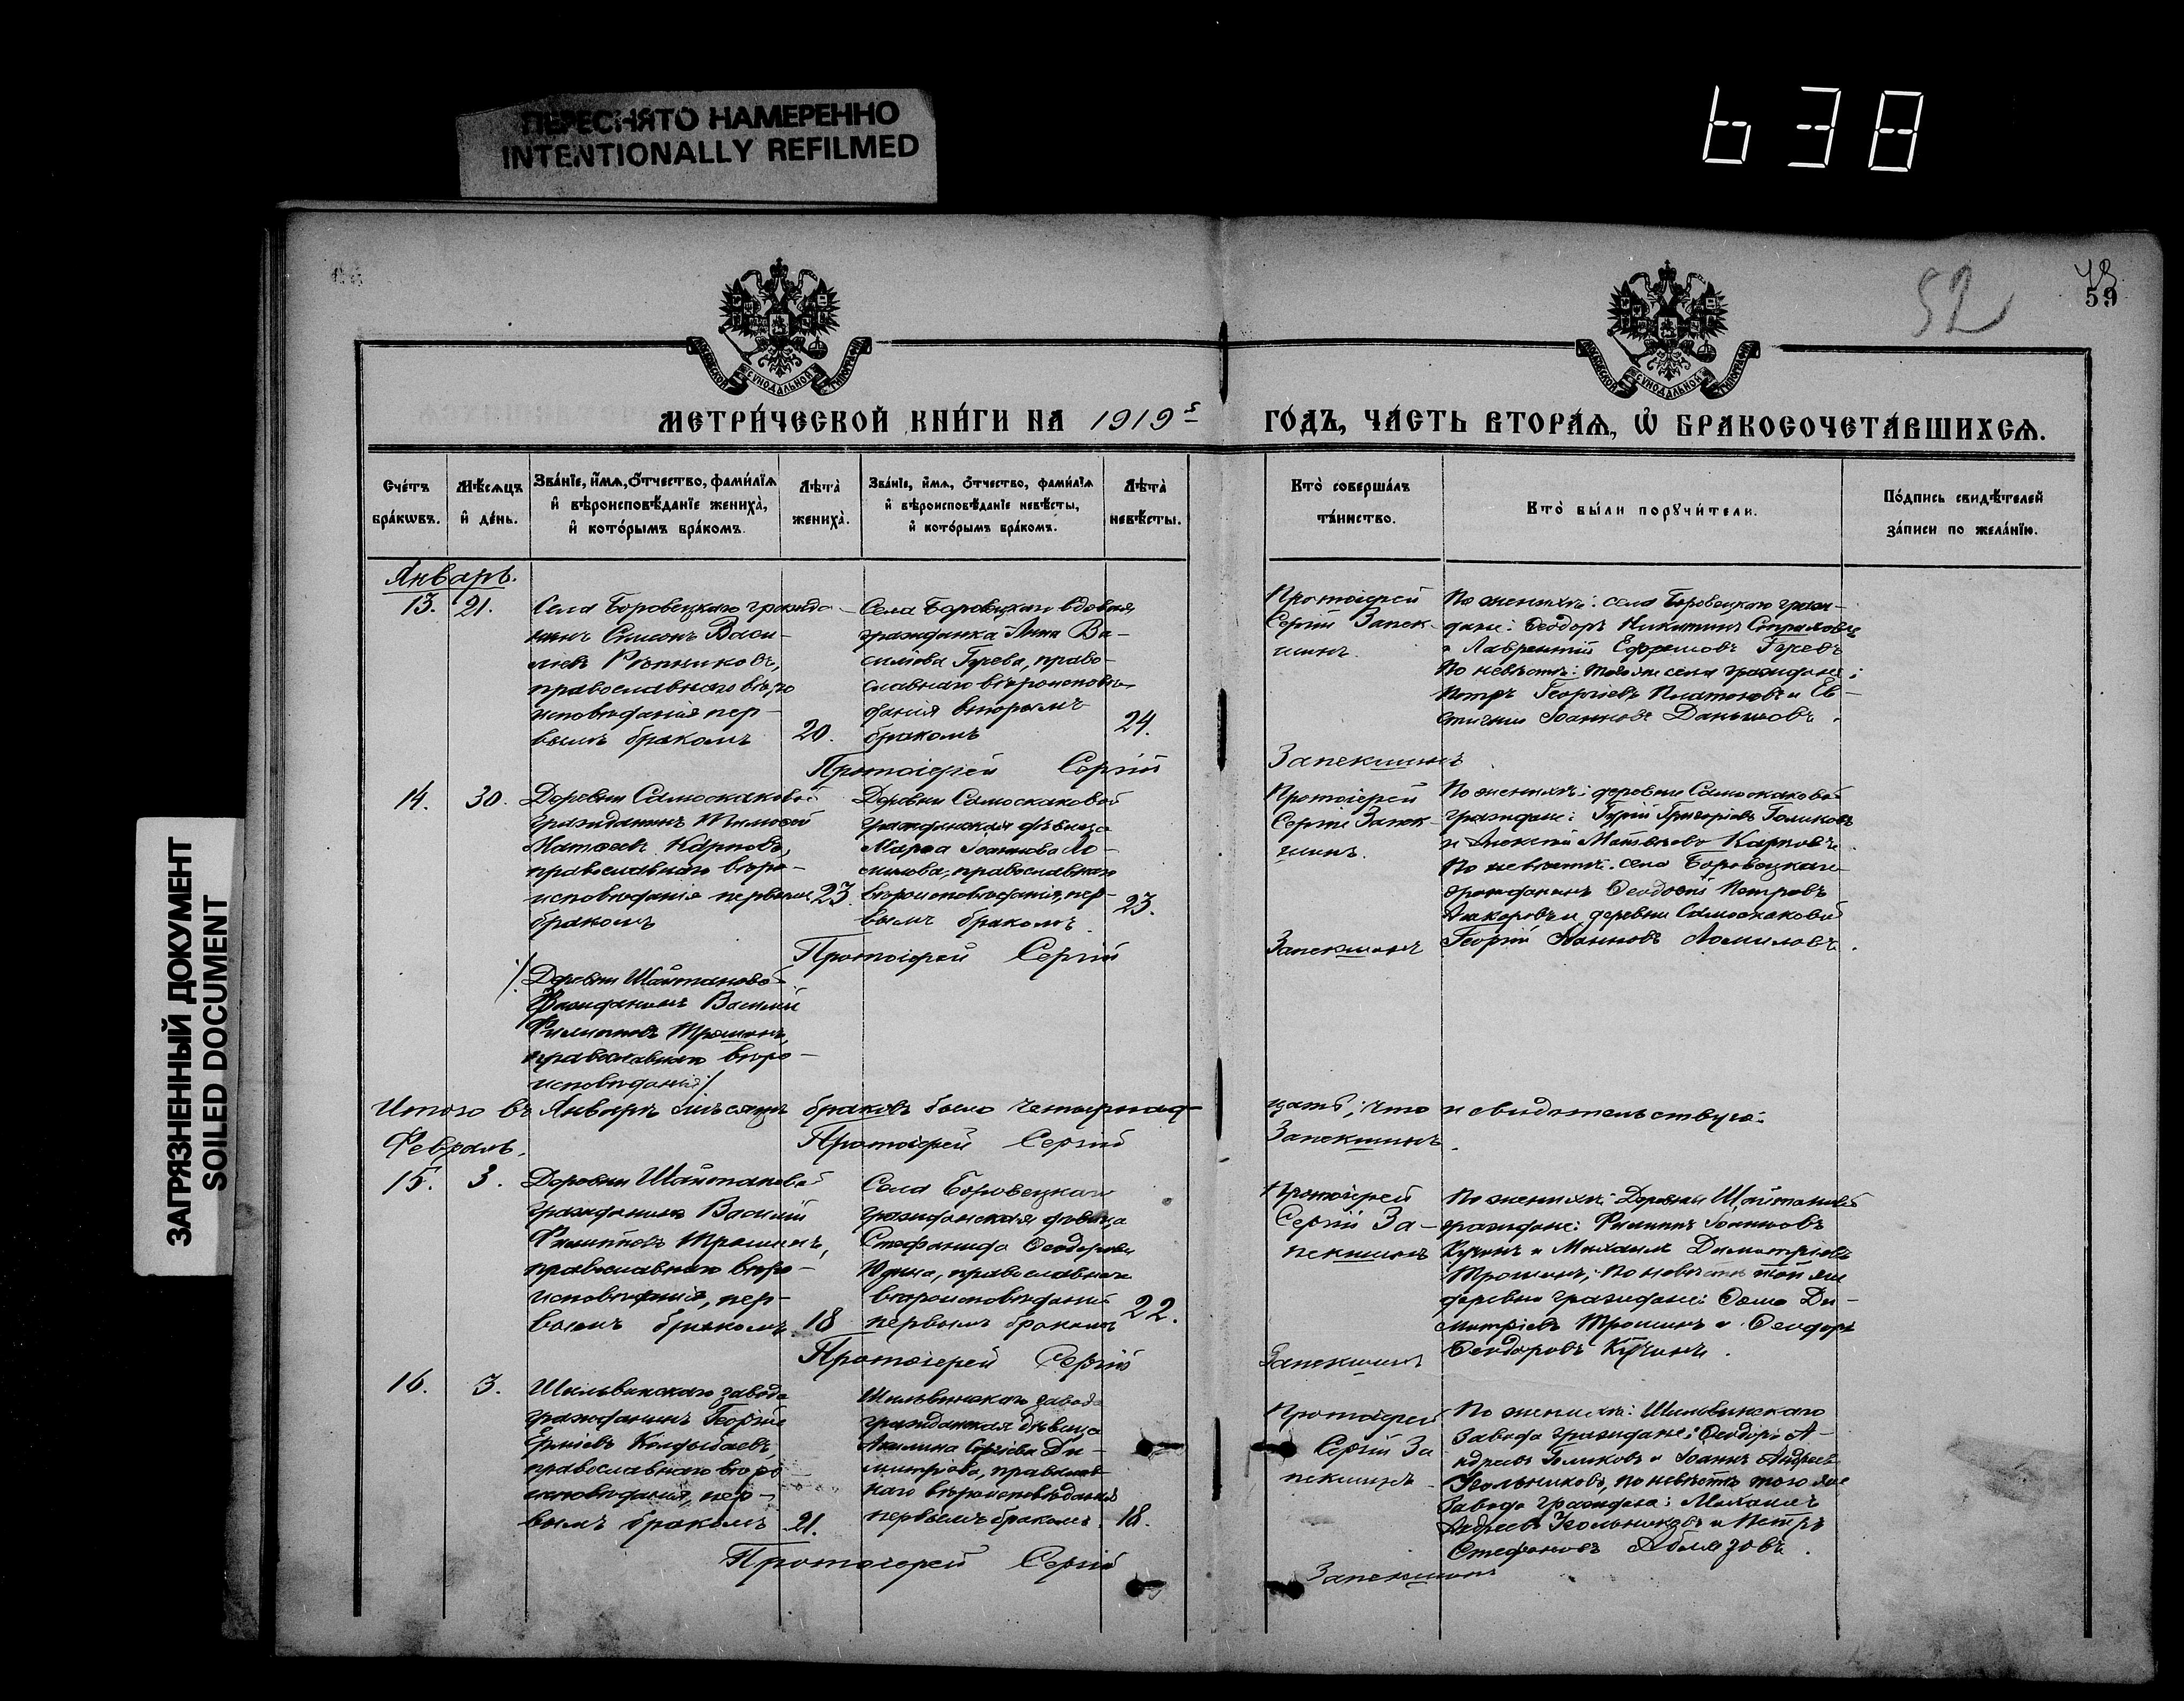 ПЕРЕСНЯТО НАМЕРЕННО
INTENTIONALLY REFILMED
638
ЗАГРЯЗНЕННЫЙ ДОКУМЕНТ
SOILED DOCUMENT
52
59
МЕТРИ́ЧЕСКОЙ КНИ́ГИ НА 1919
ГО́ДЪ, ЧА́СТЬ ВТОРА́Ѧ, Ѡ҆ БРАКОСОЧЕТА́ВШИХСѦ.
Сче́тъ бра́кѡвъ.
Мѣ́сѧцъ и҆ де́нь.
Зва́нїе, и҆́мѧ, ѻ҆́тчество, фами́лїѧ и҆ вѣроисповѣ́данїе жениха̀, и҆ кото́рымъ бра́комъ.
Лѣта̀ жениха̀.
Зва́нїе, и҆́мѧ, ѻ҆́тчество, фами́лїѧ и҆ вѣроисповѣ́данїе невѣ́сты, и҆ кото́рымъ бра́комъ.
Лѣта̀ невѣ́сты.
Кто̀ соверша́лъ та́инство.
Кто̀ бы́ли порꙋчи́тели.
По́дпись свидѣ́телей за́писи по жела́нїю.
Январь.
13. 21.
Села Боровецкаго гражда-
нинъ Симонъ Васи-
льевъ
православнаго вѣро
исповѣданія пер-
вымъ бракомъ
20.
Села Боровецкаго вдовая
гражданка Анна Ва-
сильева Гурева, право-
славнаго вѣроисповѣ-
данія вторымъ
бракомъ
24.
Протоіерей
Сергій Запек-
шинъ.
По женихѣ: села Боровецкаго граж-
дане: Ѳеодоръ Никитинъ
и Лаврентій Ефремовъ Гуревъ
По невѣстѣ: того же села граждане:
Петръ Георгіевъ Платоновъ и Ев-
Іоанновъ Даньшовъ.
Протоіерей Сергій Запекшинъ
14. 30.
Деревни Самоскаковой
гражданинъ Тимофей
Карповъ,
православнаго вѣро-
исповѣданія первымъ
бракомъ
23.
Деревни Самоскаковой
гражданская дѣвица
Марѳа Іоаннова Ло-
милова, православнаго
вѣроисповѣданія, пер-
вымъ бракомъ.
23.
Протоіерей
Сергій Запек-
шинъ.
По женихѣ: деревни Самоскаковой
граждане: Гурій Григорьевъ Голиковъ
и Алексій Матвѣевъ Карповъ.
По невѣстѣ: села Боровецкаго
гражданинъ Ѳеодосій Петровъ
и деревни Самоскаковой
Георгій Іоанновъ Ломиловъ.
Протоіерей Сергій Запекшинъ
/. Деревни Шайтановой
Гражданинъ Василій
Филипповъ Трошинъ,
православнаго вѣро-
исповѣданія /
Итого въ Январѣ мѣсяцѣ браковъ было четырнад-
цать; что и свидѣтельствую:
Протоіерей Сергій Запекшинъ.
Февраль.
15. 3.
Деревни Шайтановой
гражданинъ Василій
Филипповъ Трошинъ,
православнаго вѣро-
исповѣданія, пер-
вымъ бракомъ
18
Села Боровецкаго
гражданская дѣвица
Стефанида Ѳеодорова
Юдина, православнаго
вѣроисповѣданія
первымъ бракомъ
22.
Протоіерей
Сергій За-
пекшинъ
По женихѣ: Деревни Шайтановой
граждане: Филиппъ Іоанновъ
Кучинъ и Михаилъ Димитріевъ
Трошинъ; по невѣстѣ той же
деревни граждане: Ѳома Ди-
митріевъ Трошинъ и Ѳеодоръ
Ѳеодоровъ Кучинъ.
Протоіерей Сергій Запекшинъ
16. 3.
Шильвинскаго завода
гражданинъ Георгій
православнаго вѣро
исповѣданія, пер-
вымъ бракомъ
21.
Шильвинскаго завода
гражданская дѣвица
Акилина Сергіева Ди-
митріева, православ-
наго вѣроисповѣданія
первымъ бракомъ.
18.
Протоіерей
Сергій За
пекшинъ
По женихѣ: Шильвинскаго
Завода граждане: Ѳеодоръ А-
ндреевъ Голиковъ и Іоаннъ Андреевъ
по невѣстѣ того же
Завода граждане: Михаилъ
Андреевъ и Петръ
Стефановъ Аблязовъ.
Протоіерей Сергій Запекшинъ